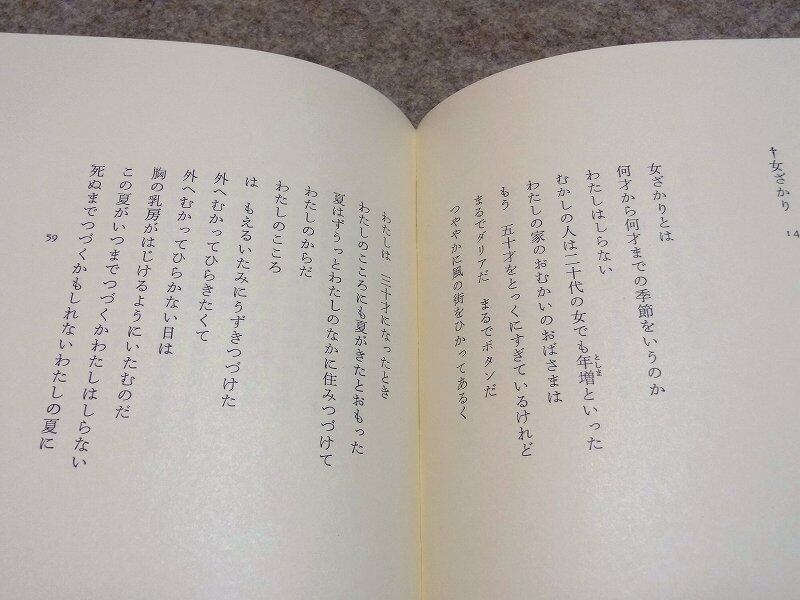 †女ざかり
14
女ざかりとは
何才から何才までの季節をいうのか
わたしはしらない
むかしの人は二十代の女でも年増といった
としま
わたしの家のおむかいのおばさまは
もう　五十才をとっくにすぎているけれど
まるでダリアだ　まるでボタンだ
つややかに風の街をひかってあるく
わたしは　三十才になったとき
わたしのこころにも夏がきたとおもった
夏はずうっとわたしのなかに住みつづけて
わたしのからだ
わたしのこころ
は　もえるいたみにうずきつづけた
外へむかってひらきたくて
外へむかってひらかない日は
胸の乳房がはじけるようにいたむのだ
この夏がいつまでつづくかわたしはしらない
死ぬまでつづくかもしれないわたしの夏に
59